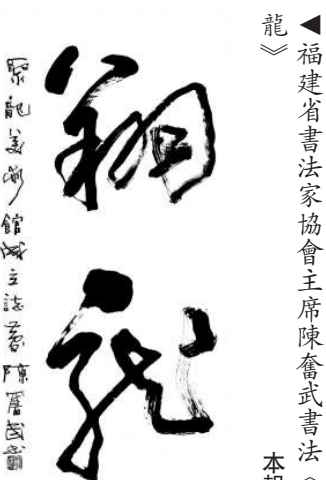 ◀福建省書法家協會主席陳奮武書法《
龍》
本報
翔龍
聚龍美術館成立誌慶 陳奮武書